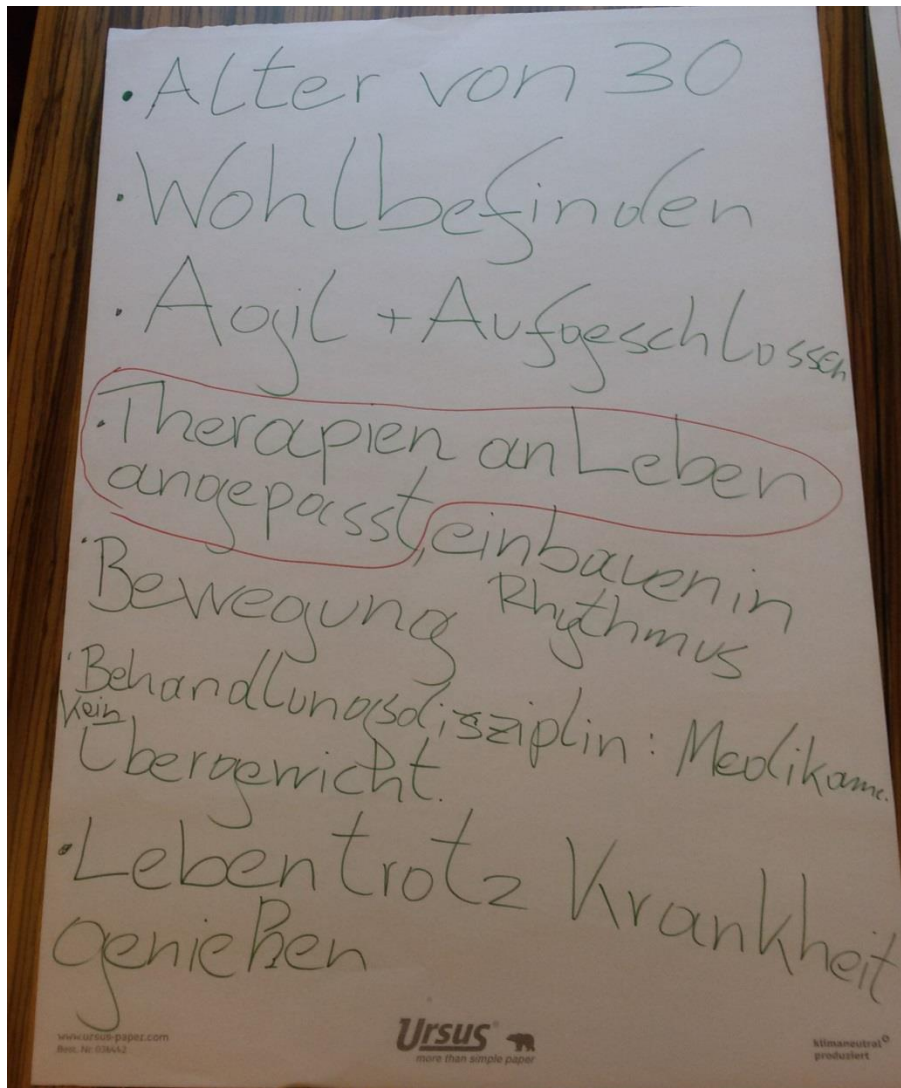 • Alter von 30
• Wohlbefinden
• Agil + Aufgeschlossen
• Therapien an Leben
angepasst, einbauen in
Rhythmus
• Bewegung
• Behandlungsdisziplin: Medikame.
Kein
Übergewicht.
• Leben trotz Krankheit
genießen
www.ursus-paper.com
Best. Nr.
Ursus®
more than simple paper
klimaneutral
produziert